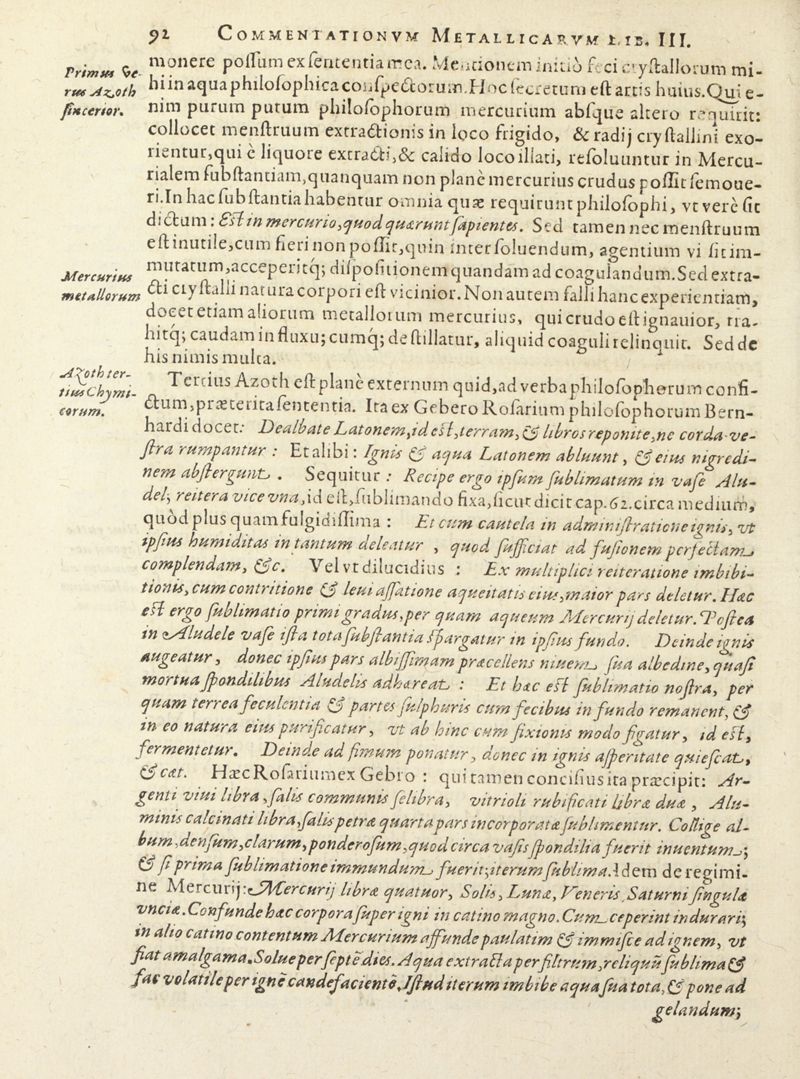 92 COMMENTATIONVM METALLICARVM LIB. III.
Primus ve-
rus Azoth
sincerior.
monere possum ex sententia mea. Mentionem initiò feci crystallorum mi-
hi in aqua philosophica conspectorum. Hoc secretum est artis huius. Qui e-
nim purum putum philosophorum mercurium absque altero requirit:
collocet menstruum extractionis in loco frigido, & radij crystallini exo-
rientur, qui è liquore extracti, & calido loco illati, resoluuntur in Mercu-
rialem substantiam, quanquam non planè mercurius crudus possit semoue-
ri. In hac substantia habentur omnia quæ requirunt philosophi, vt verè sit
dictum: Est in mercurio, quod quærunt sapientes. Sed tamen nec menstruum
est inutile, cum fieri non possit, quin inter soluendum, agentium vi sit im-
Mercurius
metallorum
mutatum, acceperitq; dispositionem quandam ad coagulandum. Sed extra-
cti crystalli natura corpori est vicinior. Non autem falli hanc experientiam,
docet etiam aliorum metallorum mercurius, qui crudo est ignauior, tra-
hitq; caudam in fluxu; cumq; destillatur, aliquid coaguli relinquit. Sed de
his nimis multa.
Azoth ter-
tius Chymi-
corum.
Tertius Azoth est planè externum quid, ad verba philosopherum confi-
ctum, præterita sententia. Ita ex Gebero Rosarium philosophorum Bern-
hardi docet: Dealbate Latonem, id est, terram, & libros reponite, ne corda ve-
stra rumpantur: Et alibi: Ignis & aqua Latonem abluunt, & eius nigredi-
nem abstergunt. Sequitur: Recipe ergo ipsum sublimatum in vase Alu-
del, reitera vice vna, id est, sublimando fixa, sicut dicit cap. 62. circa medium,
quòd plus quam fulgidissima: Et cum cautela in administratione ignis, vt
ipsius humiditas in tantum deleatur, quod sufficiat ad fusionem perfectam
complendam, &c. Vel vt dilucidius: Ex multiplici reiteratione imbibi-
tionis, cum contritione & leui assatione aqueitatis eius, maior pars deletur. Hæc
est ergo sublimatio primi gradus, per quam aqueum Mercurij deletur. Postea
in Aludele vase ista tota substantia spargatur in ipsius fundo. Deinde ignis
augeatur, donec ipsius pars albissimam præcellens niuem sua albedine, quasi
mortua spondilibus Aludelis adhæreat: Et hæc est sublimatio nostra, per
quam terrea feculentia & partes sulphuris cum fecibus in fundo remanent, &
in eo natura eius purificatur, vt ab hinc cum fixionis modo figatur, id est,
fermentetur. Deinde ad fimum ponatur, donec in ignis asperitate quiescat,
& cæt. Hæc Rosarium ex Gebro: qui tamen concisius ita præcipit: Ar-
genti viui libra, salis communis selibra, vitrioli rubificati libræ duæ, Alu-
minis calcinati libra, salis petræ quarta pars incorporatæ sublimentur. Collige al-
bum, densum, clarum, ponderosum, quod circa vasis spondilia fuerit inuentum;
& si prima sublimatione immundum fuerit, iterum sublima. Idem de regimi-
ne Mercurij: Mercurij libræ quatuor, Solis, Lunæ, Veneris, Saturni singulæ
vnciæ. Confunde hæc corpora super igni in catino magno. Cum ceperint indurari;
in alio catino contentum Mercurium affunde paulatim & immisce ad ignem, vt
fiat amalgama. Solue per septē dies. Aqua extracta per filtrum, reliquū sublima &
fac volatile per ignē candefacientē. Istud iterum imbibe aqua sua tota, & pone ad
gelandum;